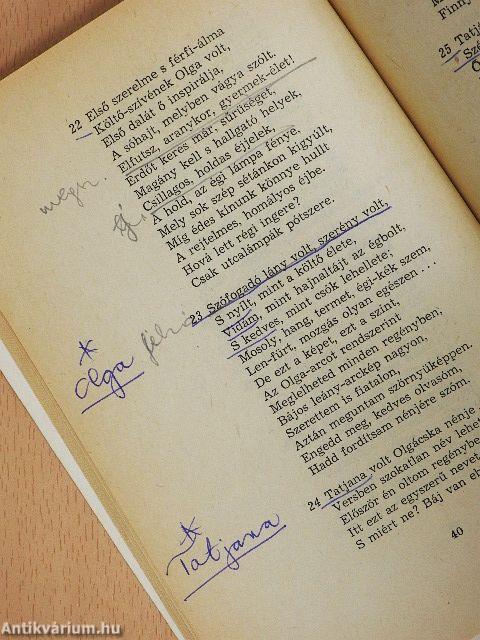 22 Első szerelme s férfi-álma
Költő-szívének Olga volt,
Első dalát ő inspirálja,
A sóhajt, melyben vágya szólt.
Elfutsz, aranykor, gyermek-élet!
Erdőt keres már, sűrűséget,
Magány kell s hallgató helyek.
Csillagos, holdas éjjelek,
A hold, az égi lámpa fénye,
Mely sok szép sétánkon kigyúlt,
Míg édes kínunk könnye hullt
A rejtelmes, homályos éjbe.
Hová lett régi ingere?
Csak utcalámpák pótszere.
23 Szófogadó lány volt, szerény volt,
S nyílt, mint a költő élete,
Vidám, mint hajnaltájt az égbolt,
S kedves, mint csók lehellete:
Mosoly, hang, termet, égi-kék szem,
Len-fürt, mozgás olyan egészen . . .
De ezt a képet, ezt a színt,
Az Olga-arcot rendszerint
Meglelheted minden regényben;
Bájos leány-arckép nagyon,
Szerettem is fiatalon,
Aztán meguntam szörnyűképpen.
Engedd meg, kedves olvasóm,
Hadd fordítsam nénjére szóm.
24 Tatjana volt Olgácska nénje
Versben szokatlan név lehet
Először én oltom regénybe
Itt ezt az egyszerű nevet
S miért ne? Báj van
40
Olga
Tatjana
25 Tatj
Antikvárium.hu